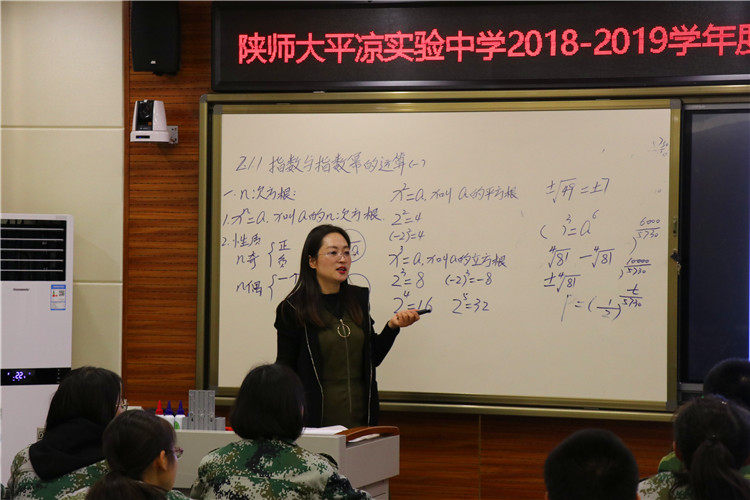 陕师大平凉实验中学2018-2019学年度
2.1.1 指数与指数幂的运算(一)
一.n次方根:
1.xⁿ=a. x叫a的n次方根.
2.性质
n奇 { 正
负
n偶 { 一个
x²=a. x叫a的平方根
2²=4
(-2)²=4
x³=a. x叫a的立方根
2³=8 (-2)³=-8
2⁴=16 2⁵=32
±√49=±7
( )³=a⁶
⁴√81 -⁴√81
±⁴√81
P=(1/2)^(t/5730)
6000/5730
10000/5730
22